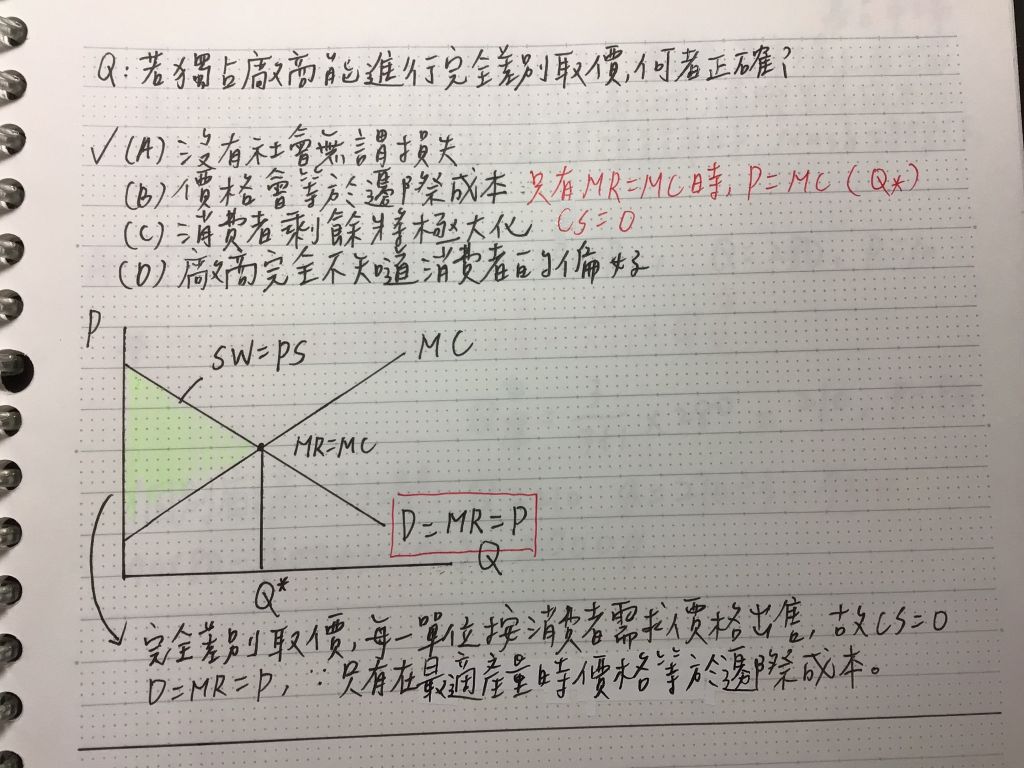 Q:若獨占廠商能進行完全差別取價,何者正確?
✓(A)沒有社會無謂損失
(B)價格會等於邊際成本 只有MR=MC時,P=MC(Q*)
(C)消費者剩餘將極大化 CS=0
(D)廠商完全不知道消費者的偏好
P
SW=PS
MC
MR=MC
D=MR=P
Q
Q*
完全差別取價,每一單位按消費者需求價格出售,故CS=0
D=MR=P,∵只有在最適產量時價格等於邊際成本。